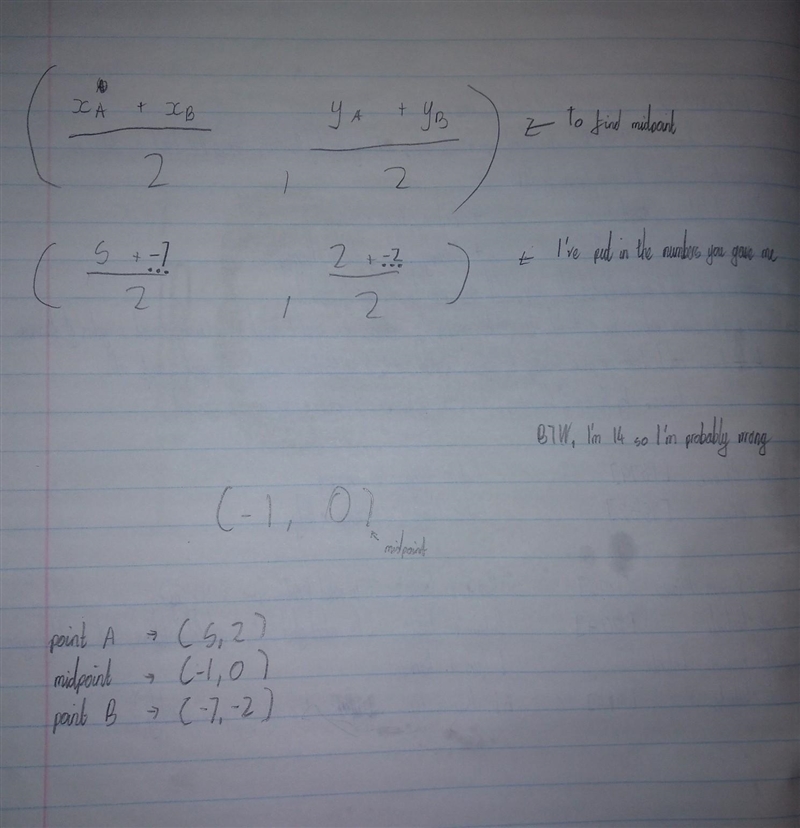 ( xA + xB / 2 , yA + yB / 2 ) ← to find midpoint
( 5 + -7 / 2 , 2 + -2 / 2 ) ← I've put in the numbers you gave me
BTW, I'm 14 so I'm probably wrong
(-1, 0)
↖ midpoint
point A → (5, 2)
midpoint → (-1, 0)
point B → (-7, -2)